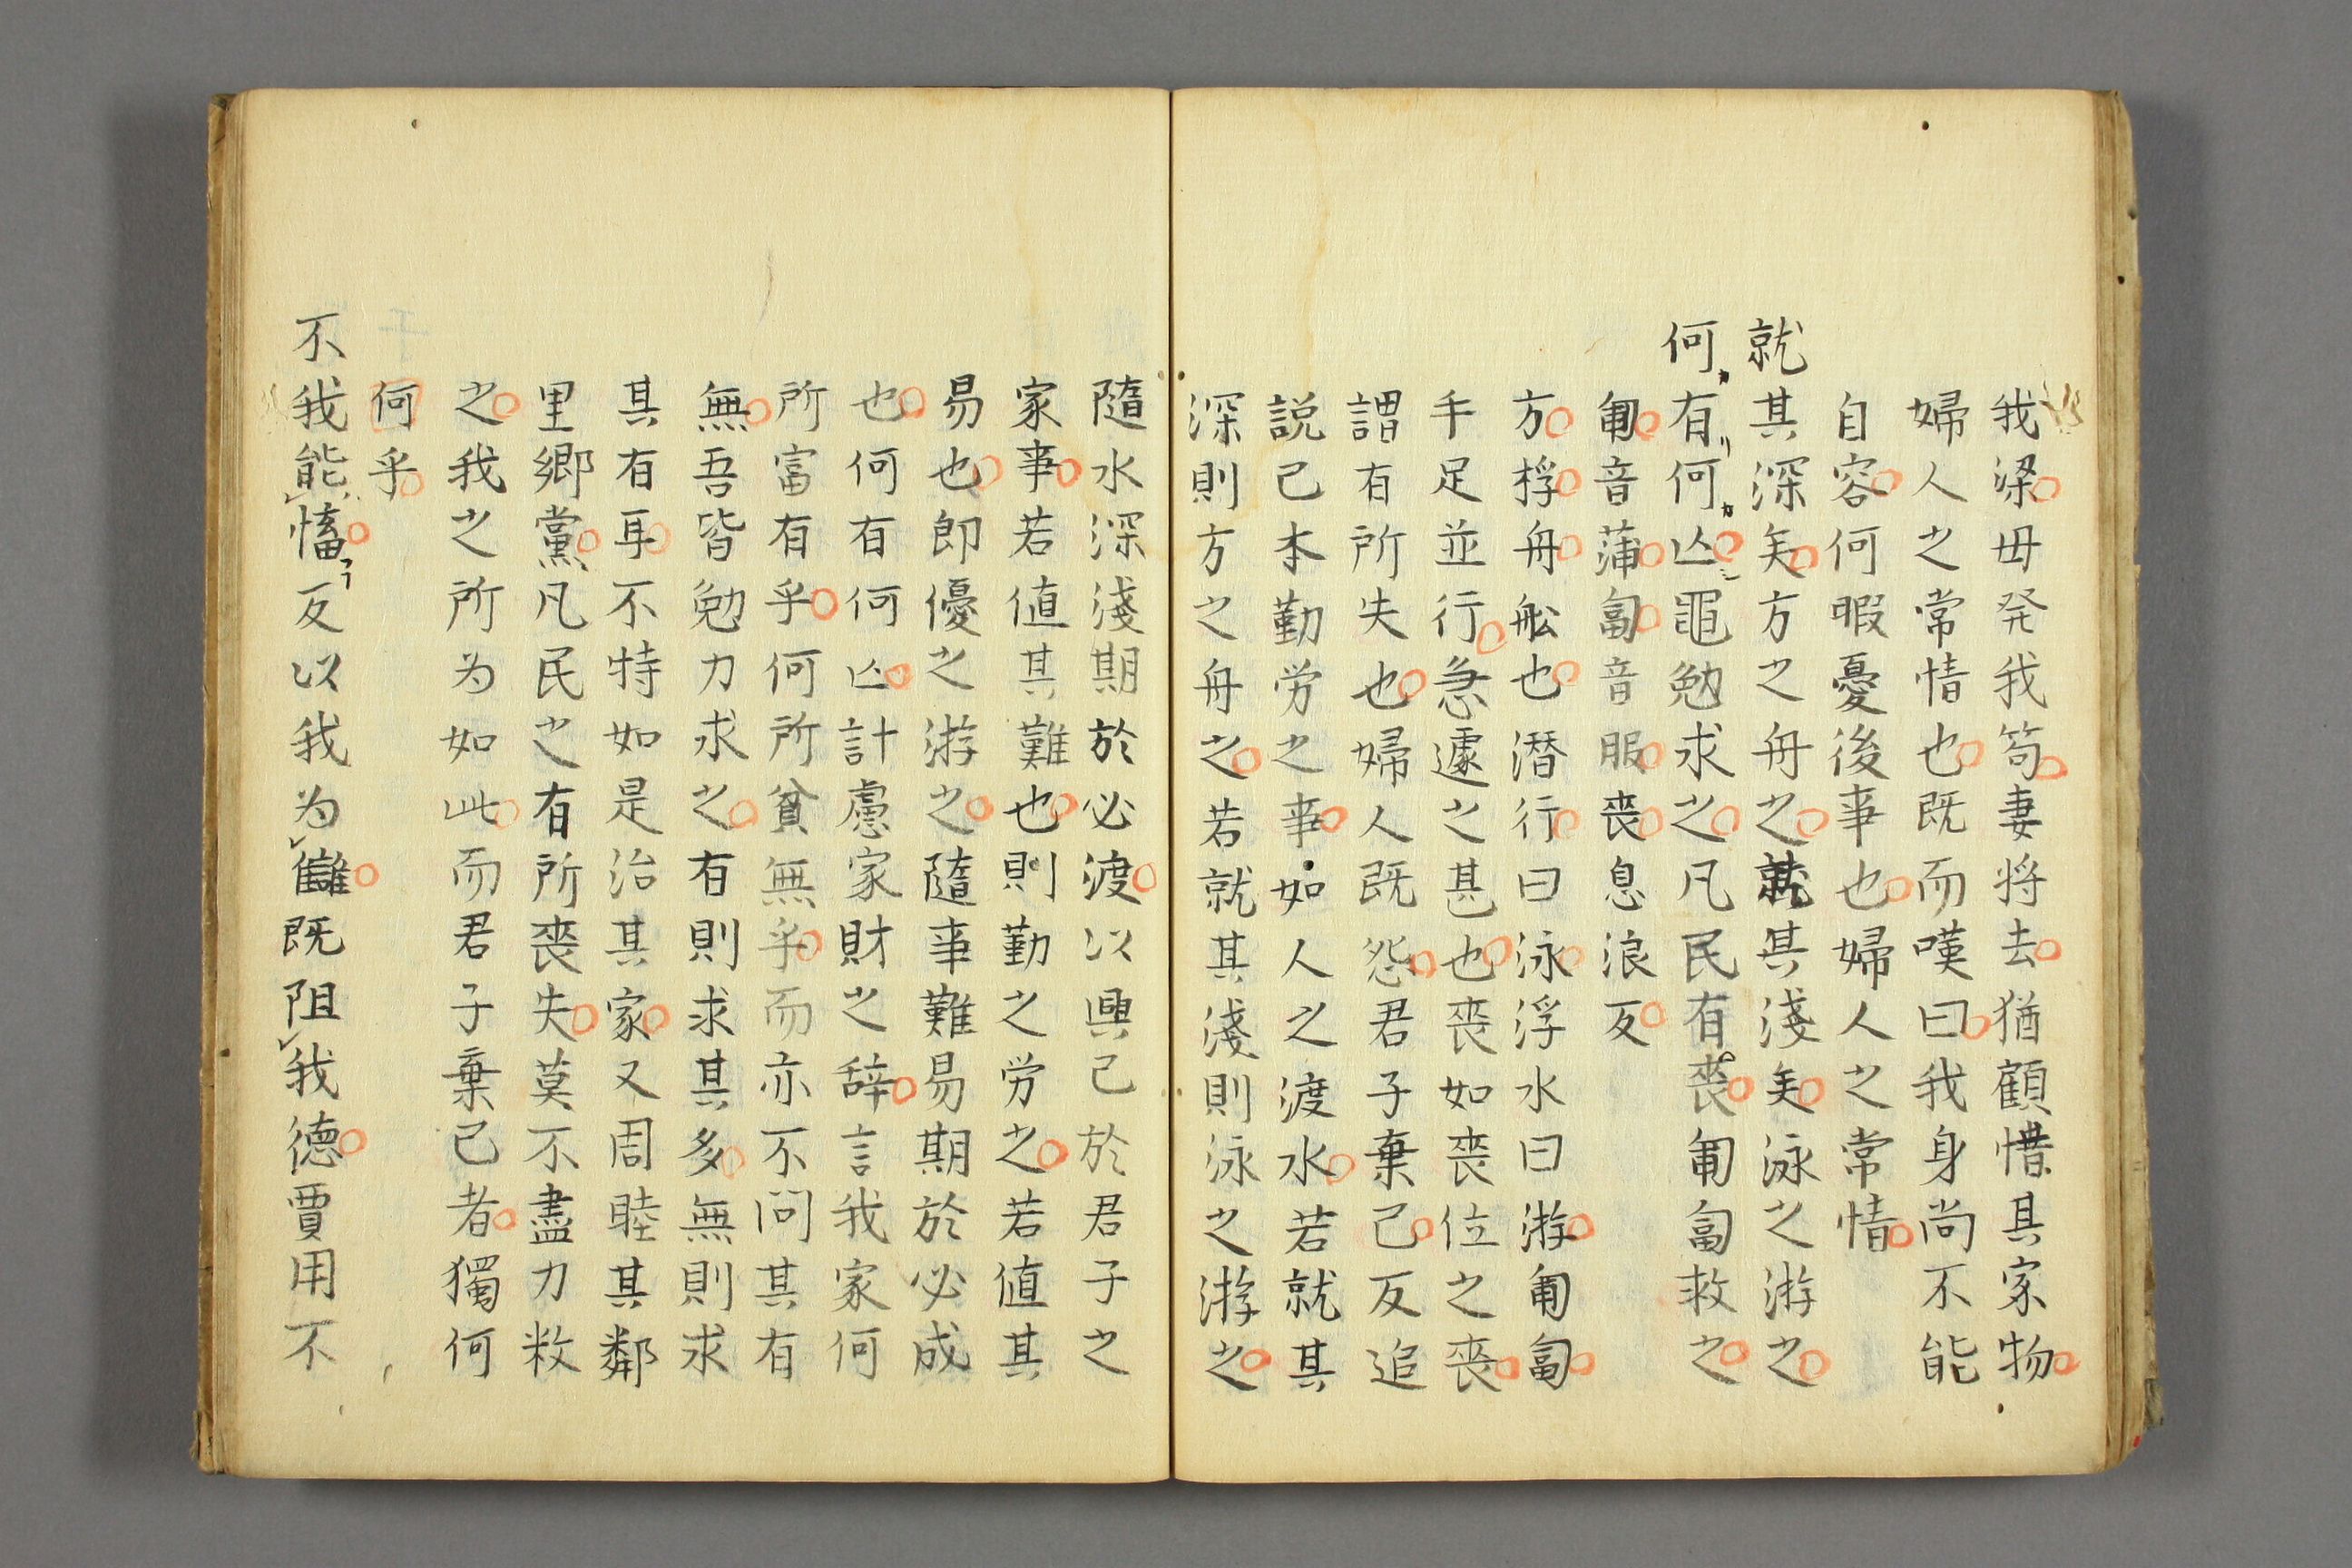 我梁毋発我笱妻将去猶顧惜其家物
婦人之常情也既而嘆曰我身尚不能
自容何暇憂後事也婦人之常情
就其深矣方之舟之就其淺矣泳之游之
何有何亾黽勉求之凡民有喪匍匐救之
匍音蒲匐音服喪息浪反
方桴舟舩也潜行曰泳浮水曰游匍匐
手足並行急遽之甚也喪如喪位之喪
謂有所失也婦人既怨君子棄己反追
説己本勤労之事如人之渡水若就其
深則方之舟之若就其淺則泳之游之
隨水深淺期於必渡以興己於君子之
家事若値其難也則勤之労之若値其
易也即優之游之隨事難易期於必成
也何有何亾計慮家財之辞言我家何
所富有乎何所貧無乎而亦不問其有
無吾皆勉力求之有則求其多無則求
其有耳不特如是治其家又周睦其鄰
里郷黨凡民之有所喪失莫不盡力救
之我之所为如此而君子棄己者獨何
何乎
不我能慉反以我为讎既阻我徳賈用不